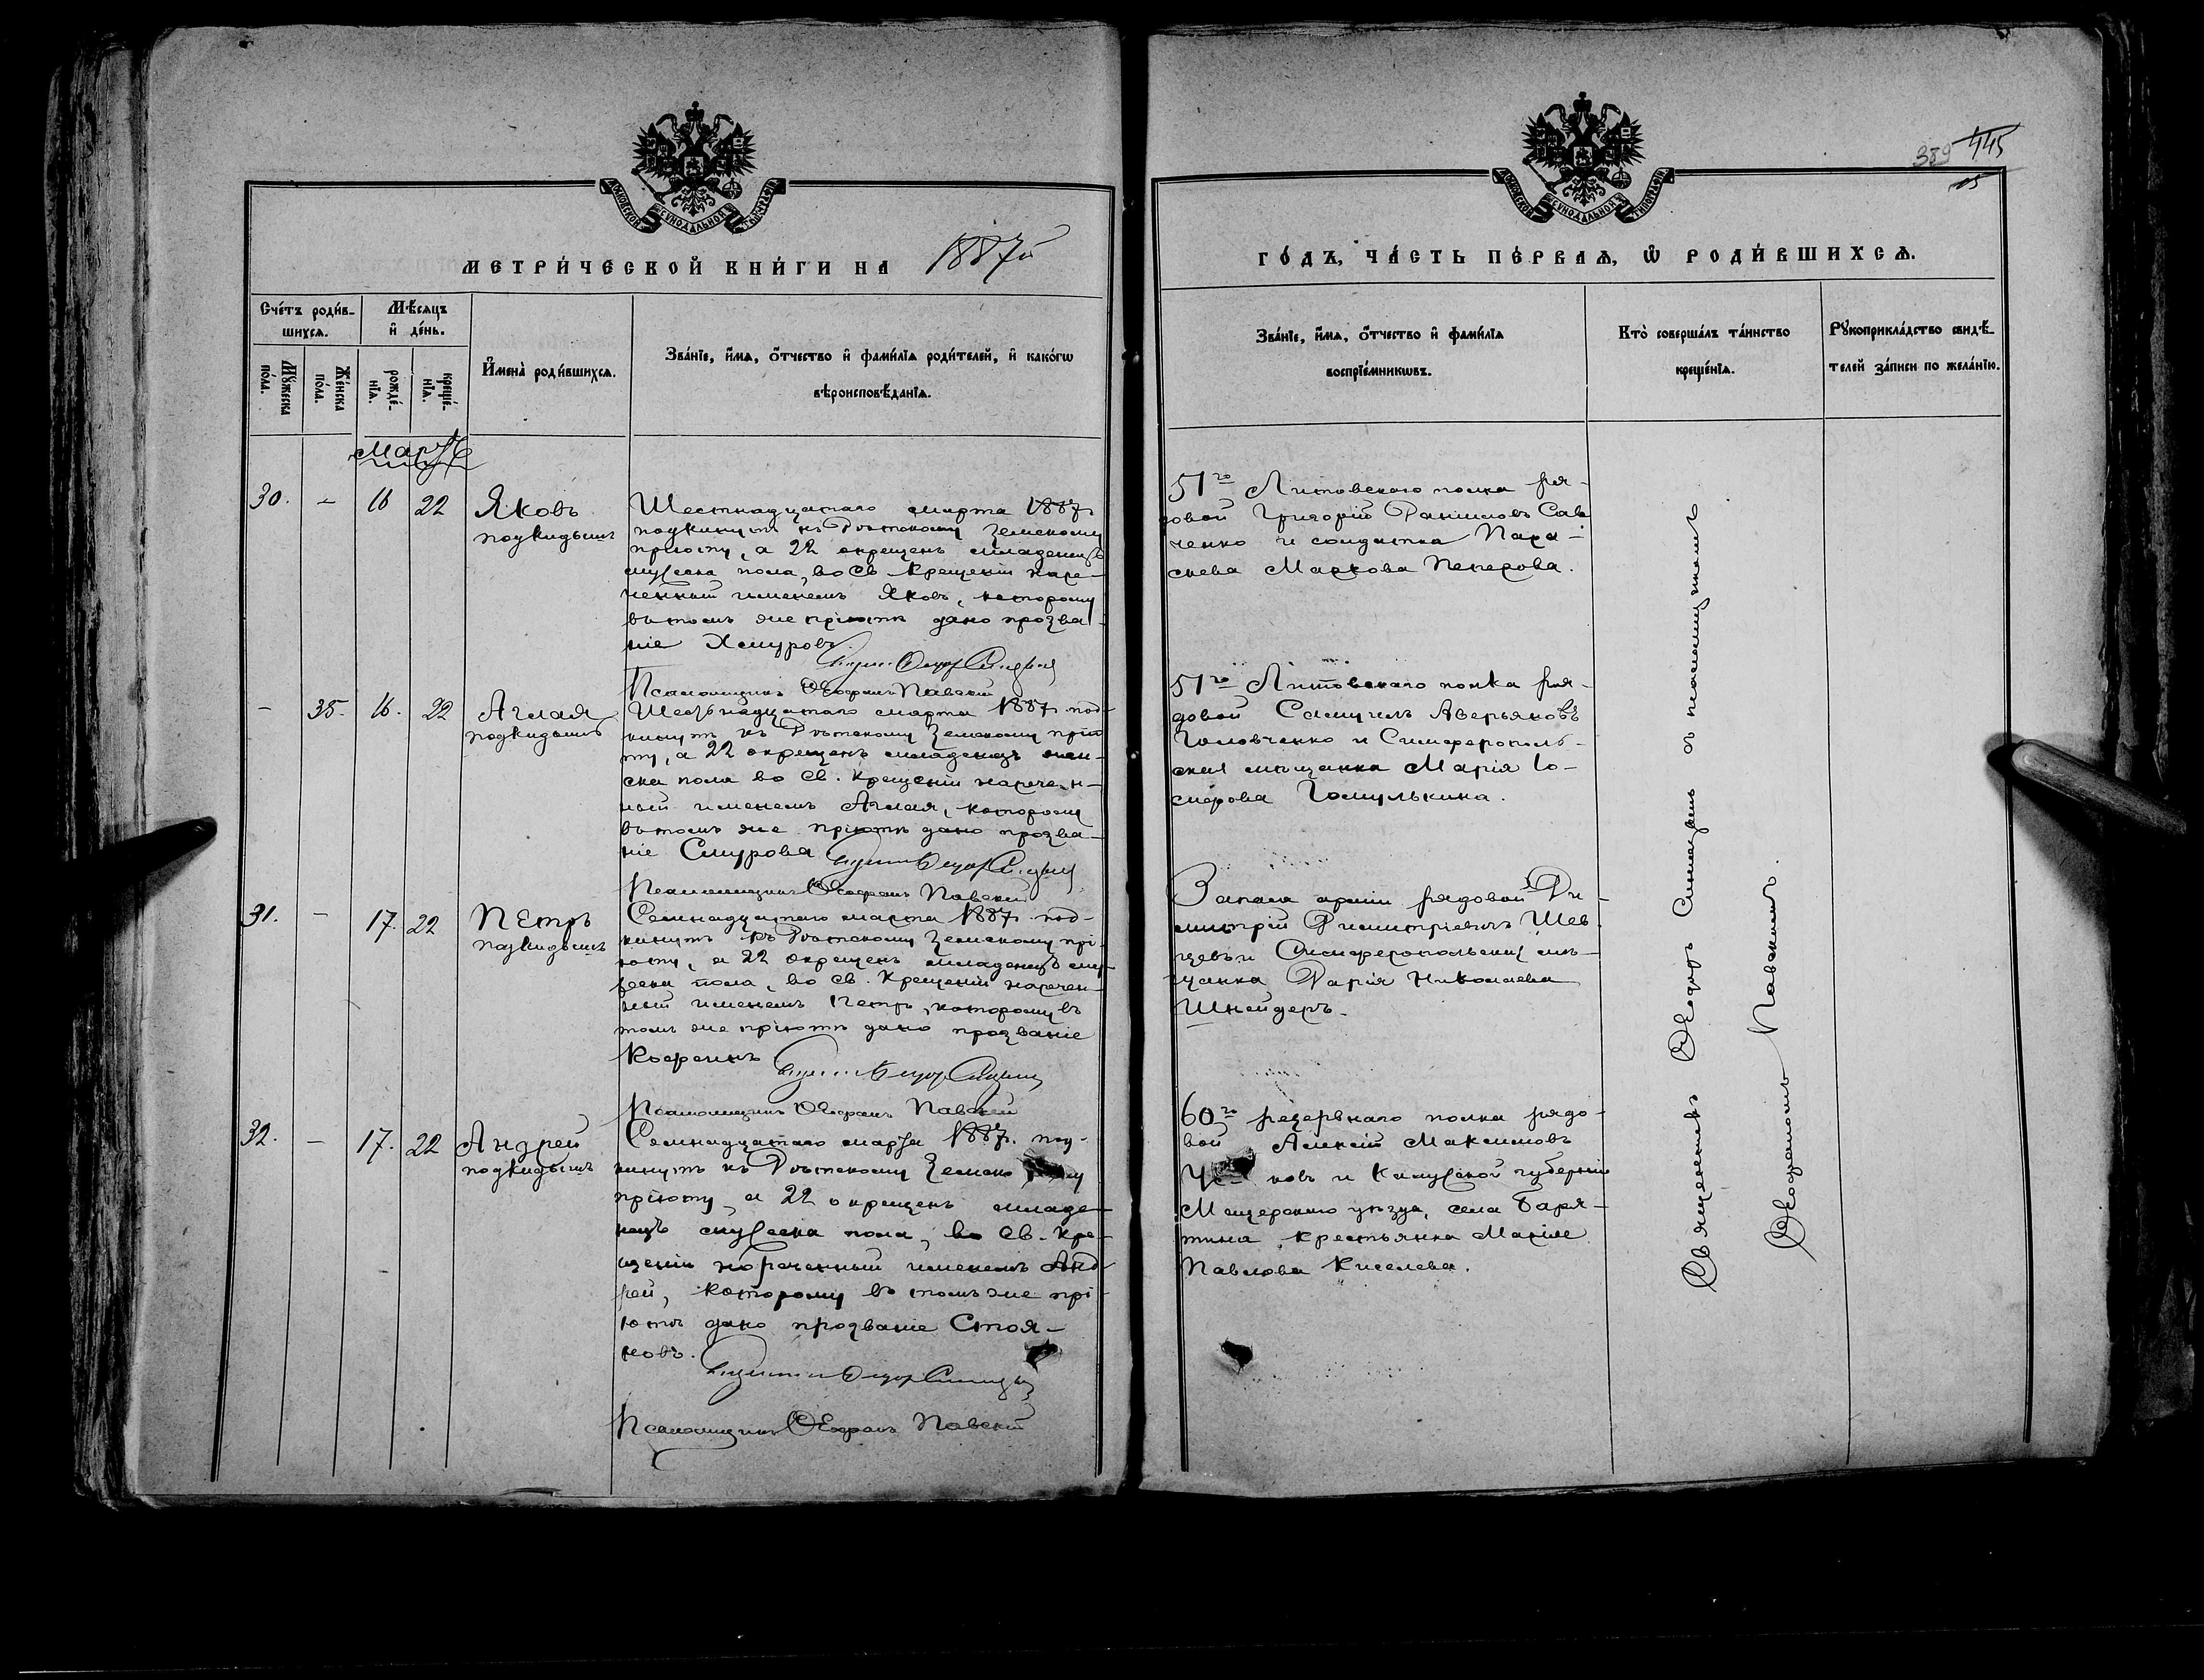 389 445
15
МЕТРИ́ЧЕСКОЙ КНИ́ГИ НА 1887й
ГО́ДЪ, ЧА́СТЬ ПЕ́РВАѦ, Ѿ РОДИ́ВШИХСѦ.
Сче́тъ роди́в-
шихсѧ.
Мѣ́сѧцъ
и҆ де́нь.
Мꙋ́жеска по́ла.
Же́нска по́ла.
рожде́-
нїѧ.
креще́-
нїѧ.
И҆мена̀ роди́вшихсѧ.
Зва́нїе, и҆́мѧ, ѻ҆́тчество и҆ фами́лїѧ роди́телей, и҆ како́гѡ
вѣроисповѣ́данїѧ.
Зва́нїе, и҆́мѧ, ѻ҆́тчество и҆ фами́лїѧ
воспрїе́мникѡвъ.
Кто̀ соверша́лъ та́инство
креще́нїѧ.
Рꙋкоприкла́дство свидѣ́-
телей за́писи по жела́нїю.
Мартъ
30. – 16 22
Яковъ
подкидышъ
Шестнадцатаго марта 1887 г.
подкинутъ къ Дѣтскому Земскому
пріюту, а 22 окрещенъ младенецъ
мужеска пола, во Св. Крещеніи наре-
ченный именемъ Яковъ, которому
въ томъ же пріютѣ дано прозва-
ніе Хмуровъ
Псаломщикъ Ѳеофанъ Павскій
51го Литовскаго полка ря-
довой Григорій Даниловъ Сав
ченко и солдатка Пара-
скева Маркова
– 35. 16. 22
Аглая
подкидышъ
Шестнадцатаго марта 1887 г. под-
кинутъ къ Дѣтскому Земскому прію
ту, а 22 окрещенъ младенецъ жен-
ска пола во Св. Крещеніи наречен-
ный именемъ Аглая, которому
въ томъ же пріютѣ дано прозва-
ніе Смурова
Псаломщикъ Ѳеофанъ Павскій
51го Литовскаго полка ря-
довой Самуилъ Аверьяновъ
Головченко и Симферополь-
ская мѣщанка Марія Іо-
сифова Гомулькина.
31. – 17. 22
Петръ
подкидышъ
Семнадцатаго марта 1887 г. под-
кинутъ къ Дѣтскому Земскому прі-
юту, а 22 окрещенъ младенецъ му-
жеска пола, во Св. Крещеніи наречен-
ный именемъ Петръ, которому въ
томъ же пріютѣ дано прозваніе
Псаломщикъ Ѳеофанъ Павскій
Запаса арміи рядовой Ди-
митрій Димитріевъ Шев
цовъ и Симферопольская мѣ-
щанка Дарія Николаева
Шнейдеръ.
32. – 17. 22
Андрей
подкидышъ
Семнадцатаго марта 1887 г. под-
кинутъ къ Дѣтскому Земскому
пріюту, а 22 окрещенъ младе-
нецъ мужеска пола, во Св. Кре-
щеніи нареченный именемъ Анд-
рей, которому въ томъ же прі-
ютѣ дано прозваніе Стоя-
новъ.
Псаломщикъ Ѳеофанъ Павскій
60го резервнаго полка рядо-
вой Алексѣй Максимовъ
новъ и Калужской губерніи
Мещерскаго уѣзда, села Баря-
тина крестьянка Марія
Павлова Киселева.
Священникъ Ѳеодоръ Синицынъ съ псаломщикомъ
Ѳеофаномъ Павскимъ.